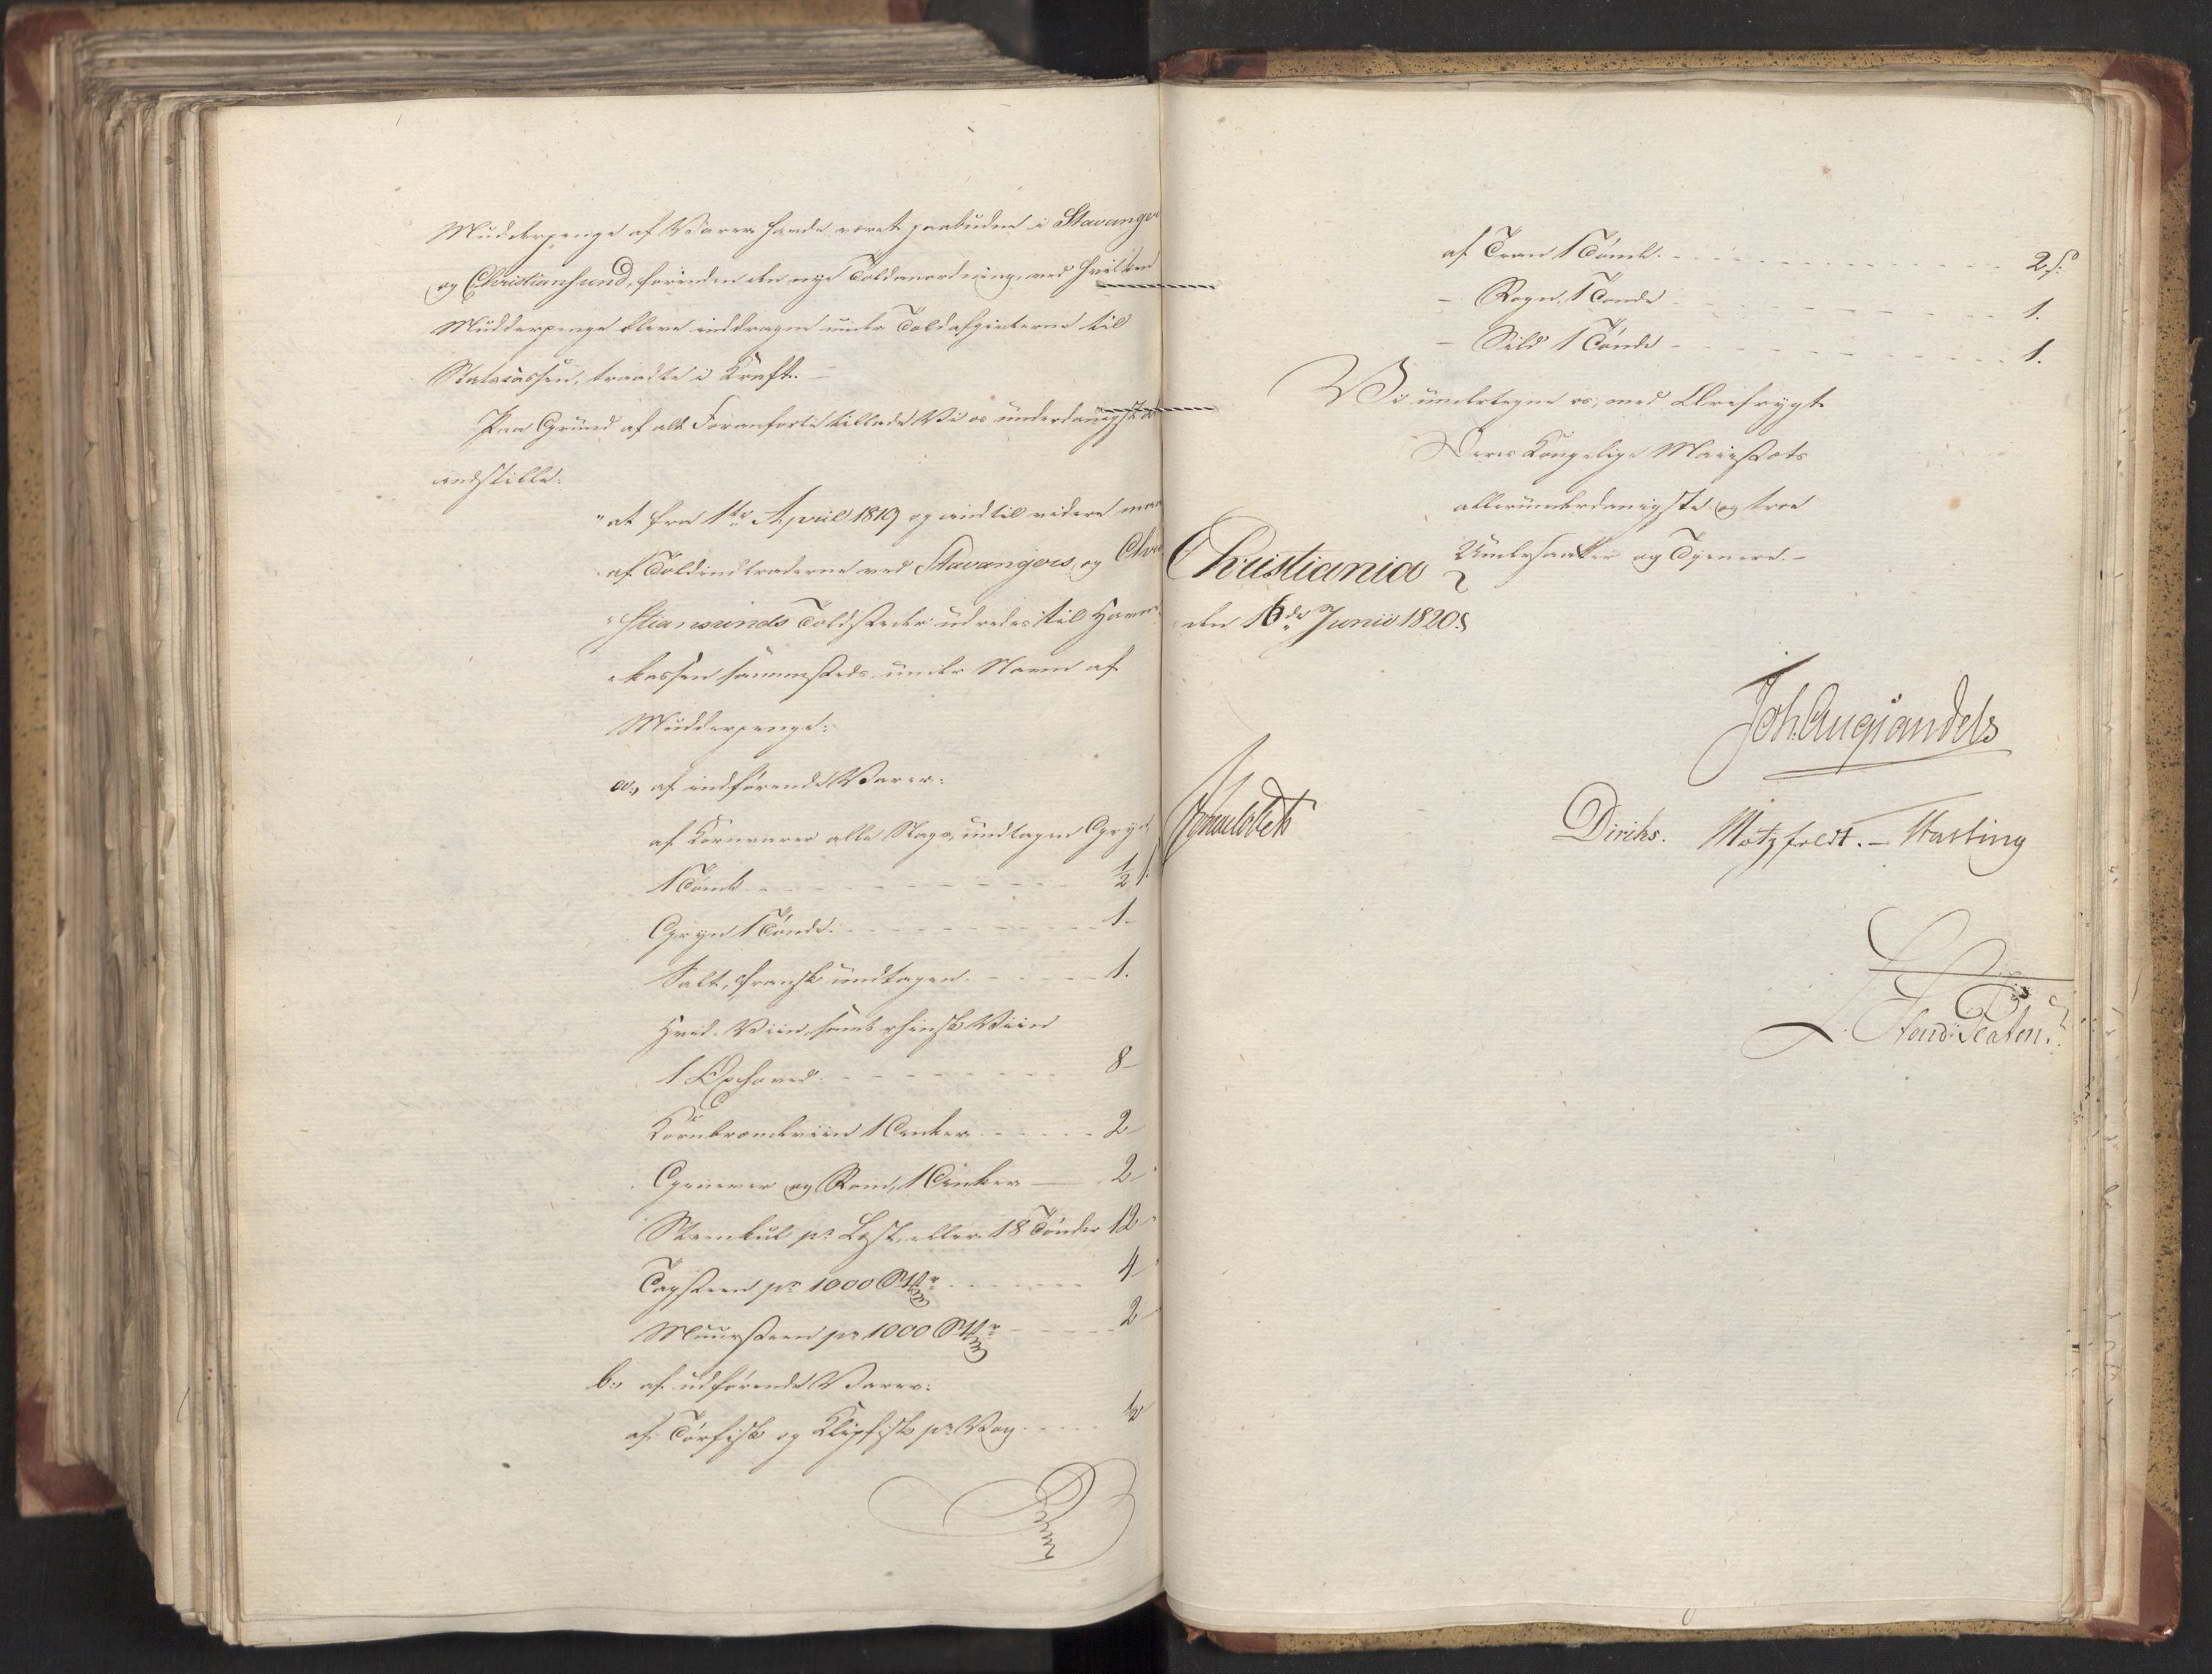 Mudderpenge af Varer havde været paabudne i Stavanger
og Christiansund, forinden den nye Toldanordning, ved hvilken
Mudderpenge bleve inddragne under Toldafgivterne til
Statscassen, traadte i Kraft. —
Paa Grund af alt Foranførte tillade Vi os underdanigst at
indstille:
"at fra 1ste April 1819 og indtil videre maa
af Toldindtraderne ved Stavangers og Chri-
"stiansunds Toldsteder udredes til Havne-
"kassen sammesteds under Navn af
Mudderpenge:
a., af indførende Varer:
af Kornvarer alle Slags, undtagen Gryn,
1 Tønde - - - ½ s.
Gryn 1 Tønde - - - 1 -
Salt, fransk undtagen - - - 1.
Hvid Viin, samt rhinsk Viin
1 Oxhoved - - - 8 -
Kornbrændeviin 1 Anker - - - 2 -
Genever og Rom, 1 Anker — 2 -
Steenkul pr. Læst, eller 18 Tønder 12 -
Tagsteen pr. 1000 Stkr - - - 4
Muursteen pr. 1000 Stkr - - - 2
b., af udførende Varer:
af Tørfisk og Klipfisk pr. Vog - - - ½
af Tran 1 Tønde - - - 2 s.
- Rogn, 1 Tønde - - - 1.
- Sild 1 Tønde - - - 1.
Vi undertegne os, med Ærefrygt
Deres Kongelige Majestæts
allerunderdanigste og troe
Christiania Undersaatter og Tjenere. -
den 16de Junii 1820.
Joh. Aug. Sandels
Diriks. Motzfeldt. - Hasting